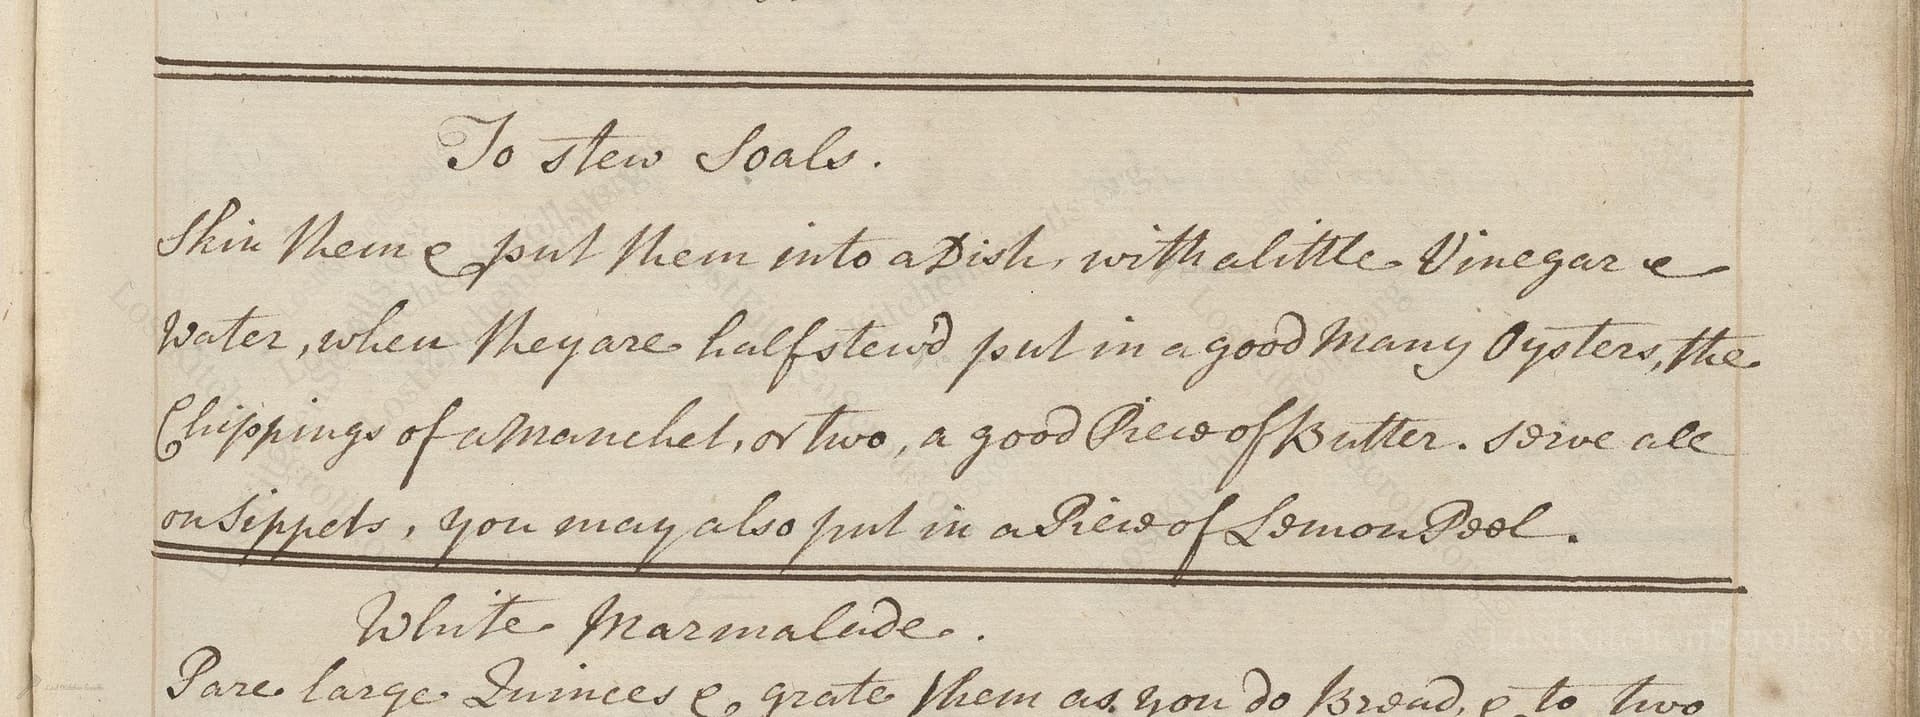 To stew Soals.
Skin them & put them into a Dish, with a little Vinegar &
Water, when they are half stew'd put in a good Many Oysters, the
Chippings of a Manchet, or two, a good Piece of Butter. serve all
on Sippets, you may also put in a Piece of Lemon Peel.
White Marmalade.
Pare large Quinces & grate them as you do Bread, & to two
LostKitchenScrolls.org